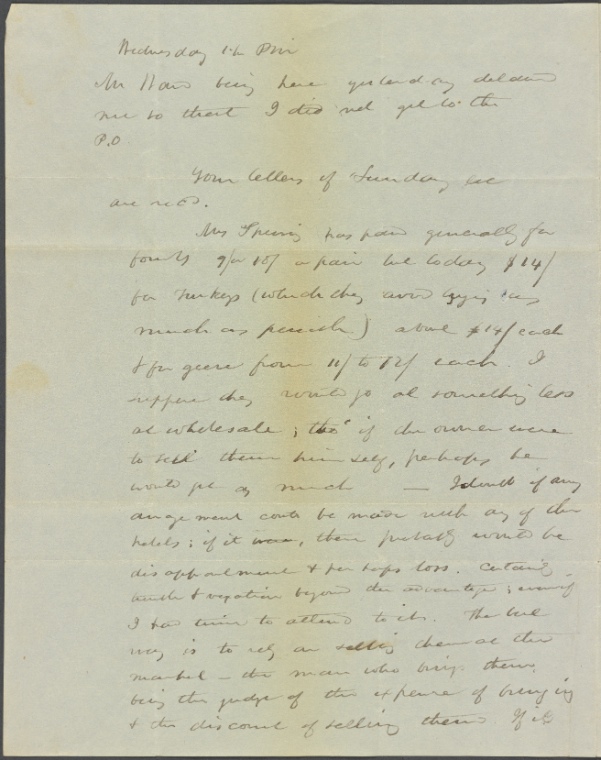 Wednesday 1½ PM
Mr Haw being here yesterday detained
me so that I did not get to the
P.O.
Your letters of Sunday &c
are recd.
Mrs Spring has paid generally for
fowls 9/ or 10/ a pair but today $14/
for turkeys (which they avoid buying as
much as possible) about $14/ each
& for geese from 11/ to 12/ each. I
suppose they would go at something less
at wholesale; tho' if the owner were
to sell them himself, perhaps he
would get as much — I doubt if any
arrangement could be made with any of the
hotels; if it was, there probably would be
disappointment & perhaps loss. Certainly
trouble & vexation beyond the advantage; even if
I had time to attend to it. The best
way is to rely on selling them at the
market — the man who brings them
being the judge of the expense of bringing
& the discount of selling them. If it